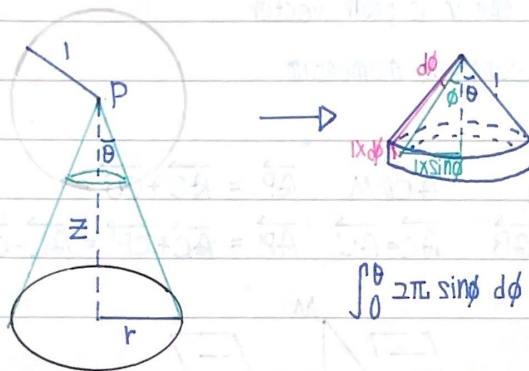 1
P
θ
Z
r
dϕ
ϕ
θ
1
1×dϕ
1×sinϕ
∫₀^θ 2π sinϕ dϕ